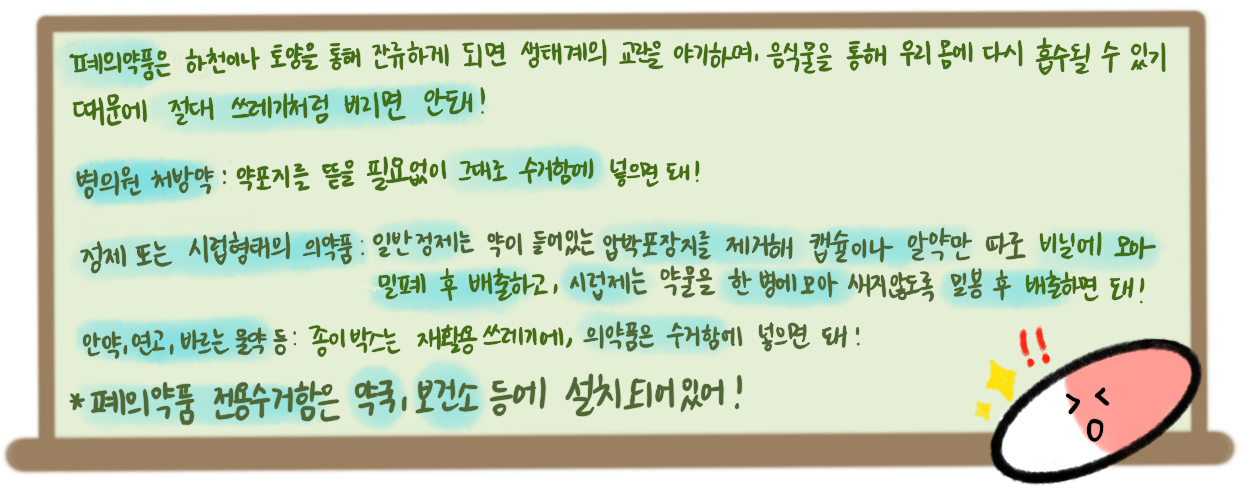 폐의약품은 하천이나 토양을 통해 잔류하게 되면 생태계의 교란을 야기하며, 음식물을 통해 우리 몸에 다시 흡수될 수 있기
때문에 절대 쓰레기처럼 버리면 안돼!
병의원 처방약 : 약포지를 뜯을 필요없이 그대로 수거함에 넣으면 돼!
정제 또는 시럽형태의 의약품 : 일반정제는 약이 들어있는 압박포장지를 제거해 캡슐이나 알약만 따로 비닐에 모아
밀폐 후 배출하고, 시럽제는 약물을 한 병에 모아 새지않도록 밀봉 후 배출하면 돼!
안약, 연고, 바르는 물약 등 : 종이박스는 재활용 쓰레기에, 의약품은 수거함에 넣으면 돼!
* 폐의약품 전용수거함은 약국, 보건소 등에 설치되어있어!
!!